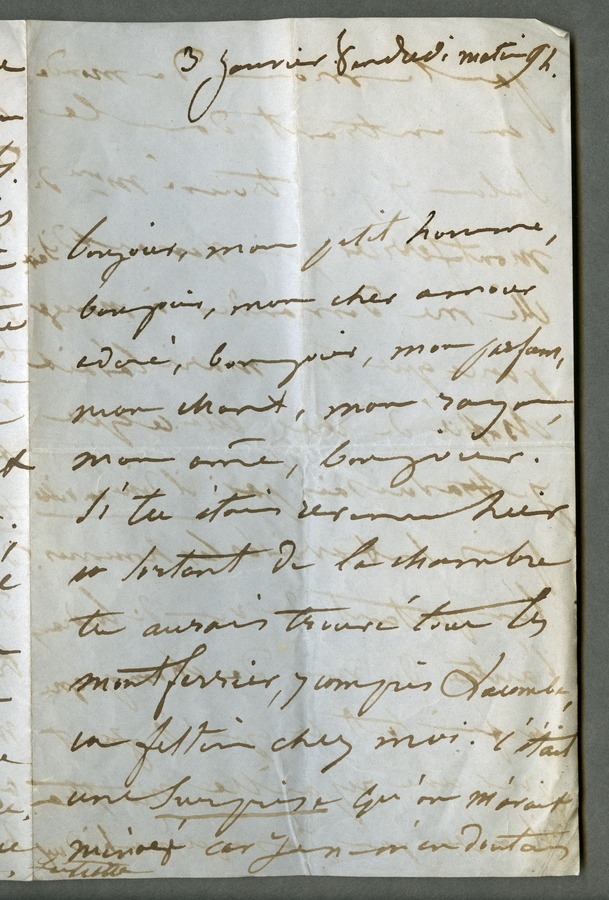 3 Janvier Vendredi matin 9h.
bonjour, mon petit homme,
bonjour, mon cher amour
adoré, bonjour, mon parfum,
mon chant, mon rayon,
mon âme, bonjour.
Si tu étais revenu hier
en sortant de la chambre
tu aurais trouvé tous les
montferrier, y compris Lacombe,
en festin chez moi. C'était
une Surprise qu'on m'avait
ménagé car je n'm'en doutais